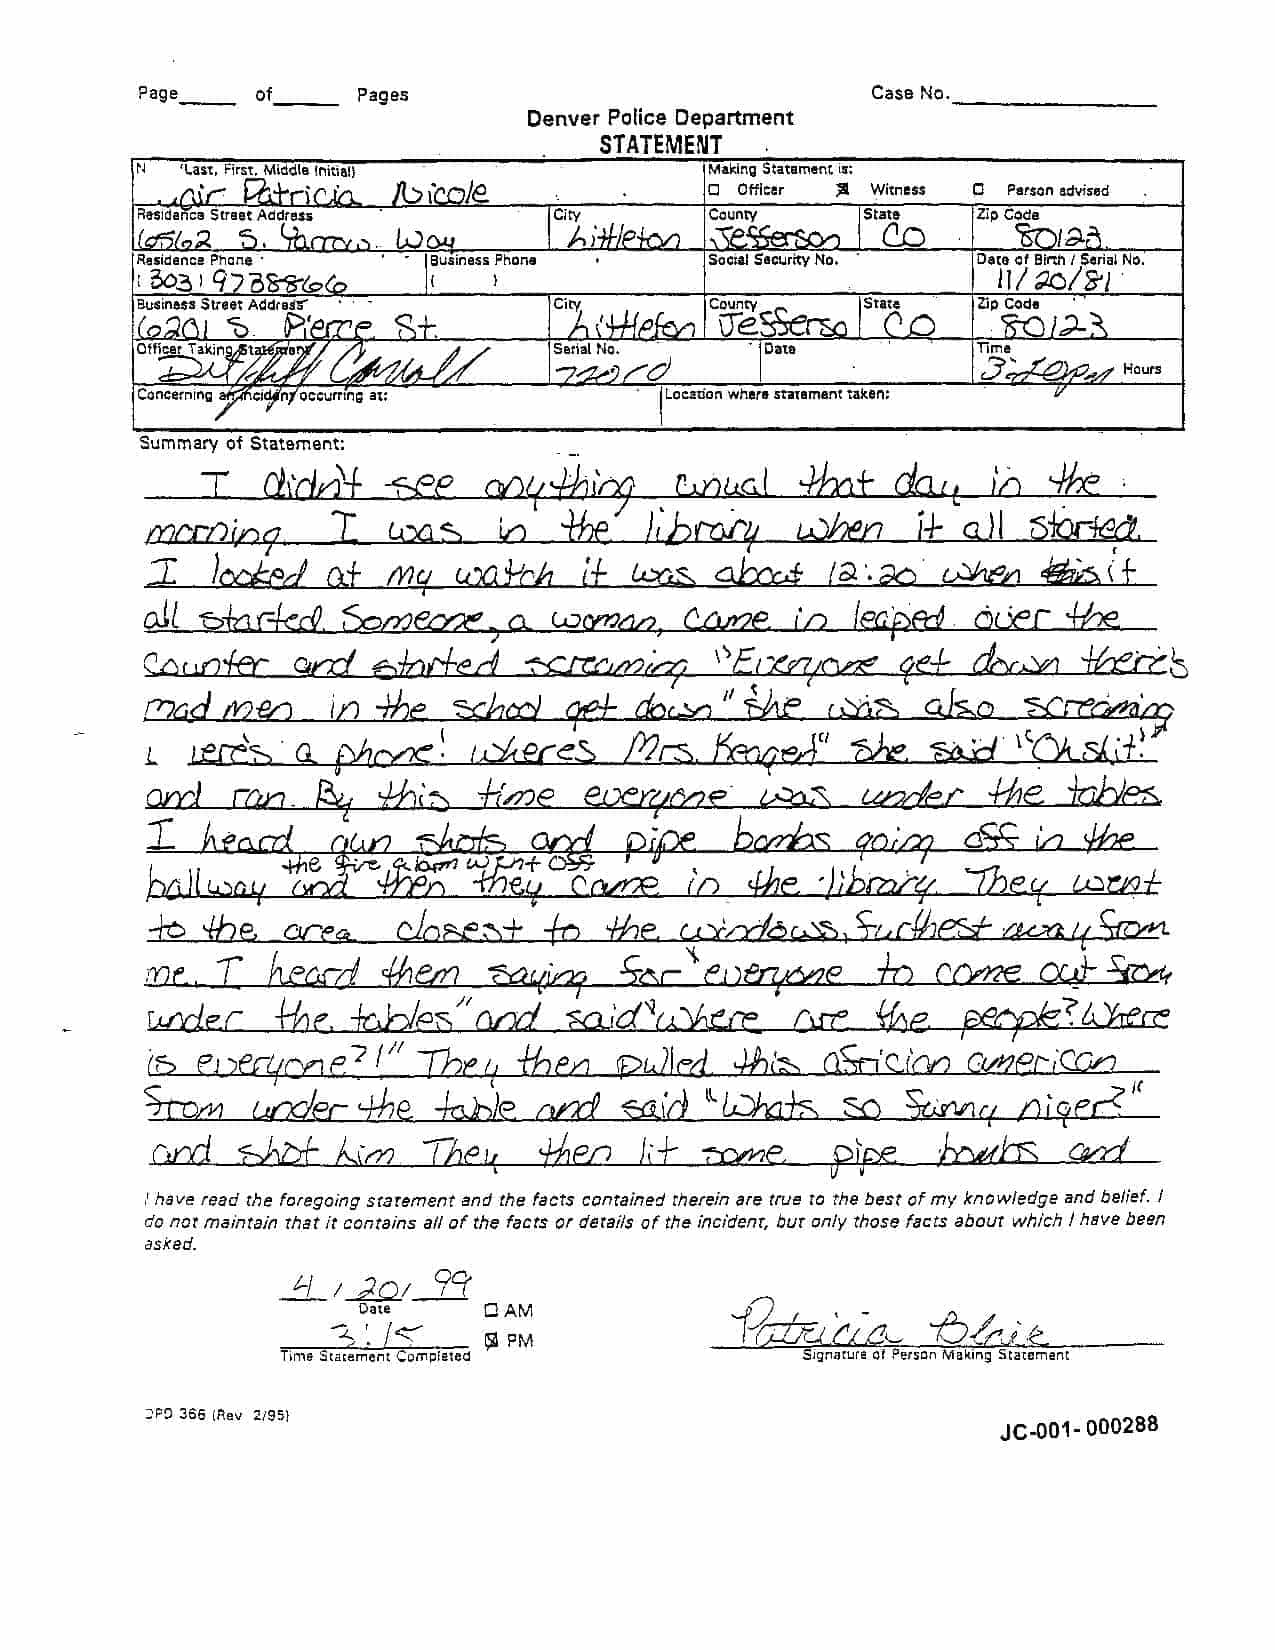 Page of Pages Case No.
Denver Police Department
STATEMENT
(Last, First, Middle Initial) Making Statement is:
Patricia Nicole Officer Witness Person advised
Residence Street Address City County State Zip Code
6562 S. Way Littleton Jefferson CO 80123
Residence Phone Business Phone Social Security No. Date of Birth / Serial No.
(303) 9738866 ( ) 11/20/81
Business Street Address City County State Zip Code
6201 S. Pierce St. Littleton Jefferso CO 80123
Officer Taking Statement Serial No. Date Time
Hours
Concerning an incident occurring at: Location where statement taken:
Summary of Statement:
I didn't see anything that day in the
morning. I was in the library when it all started.
I looked at my watch it was about 12:20 when it
all started. Someone, a woman, came in leaped over the
counter and started screaming "Everyone get down there's
mad men in the school get down" She was also screaming
a phone! wheres Mrs. She said "Oh shit!"
and ran. By this time everyone was under the tables
I heard gun shots and pipe bombs going off in the
the fire alarm went off
hallway and then they came in the library They went
to the area closest to the windows, furthest away from
me. I heard them saying for "everyone to come out from
under the tables" and said "where are the people? Where
is everyone?!" They then pulled this africian american
from under the table and said "Whats so funny niger?"
and shot him They then lit some pipe bombs and
I have read the foregoing statement and the facts contained therein are true to the best of my knowledge and belief. I
do not maintain that it contains all of the facts or details of the incident, but only those facts about which I have been
asked.
4 / 20 / 99
Date AM
3:15 PM Patricia
Time Statement Completed Signature of Person Making Statement
DPD 366 (Rev 2/95)
JC-001-000288